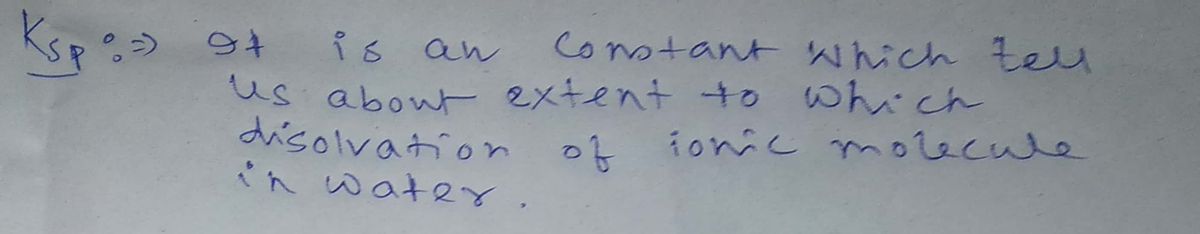 Ksp :⇒ It is an constant which tell
us about extent to which
disolvation of ionic molecule
in water.